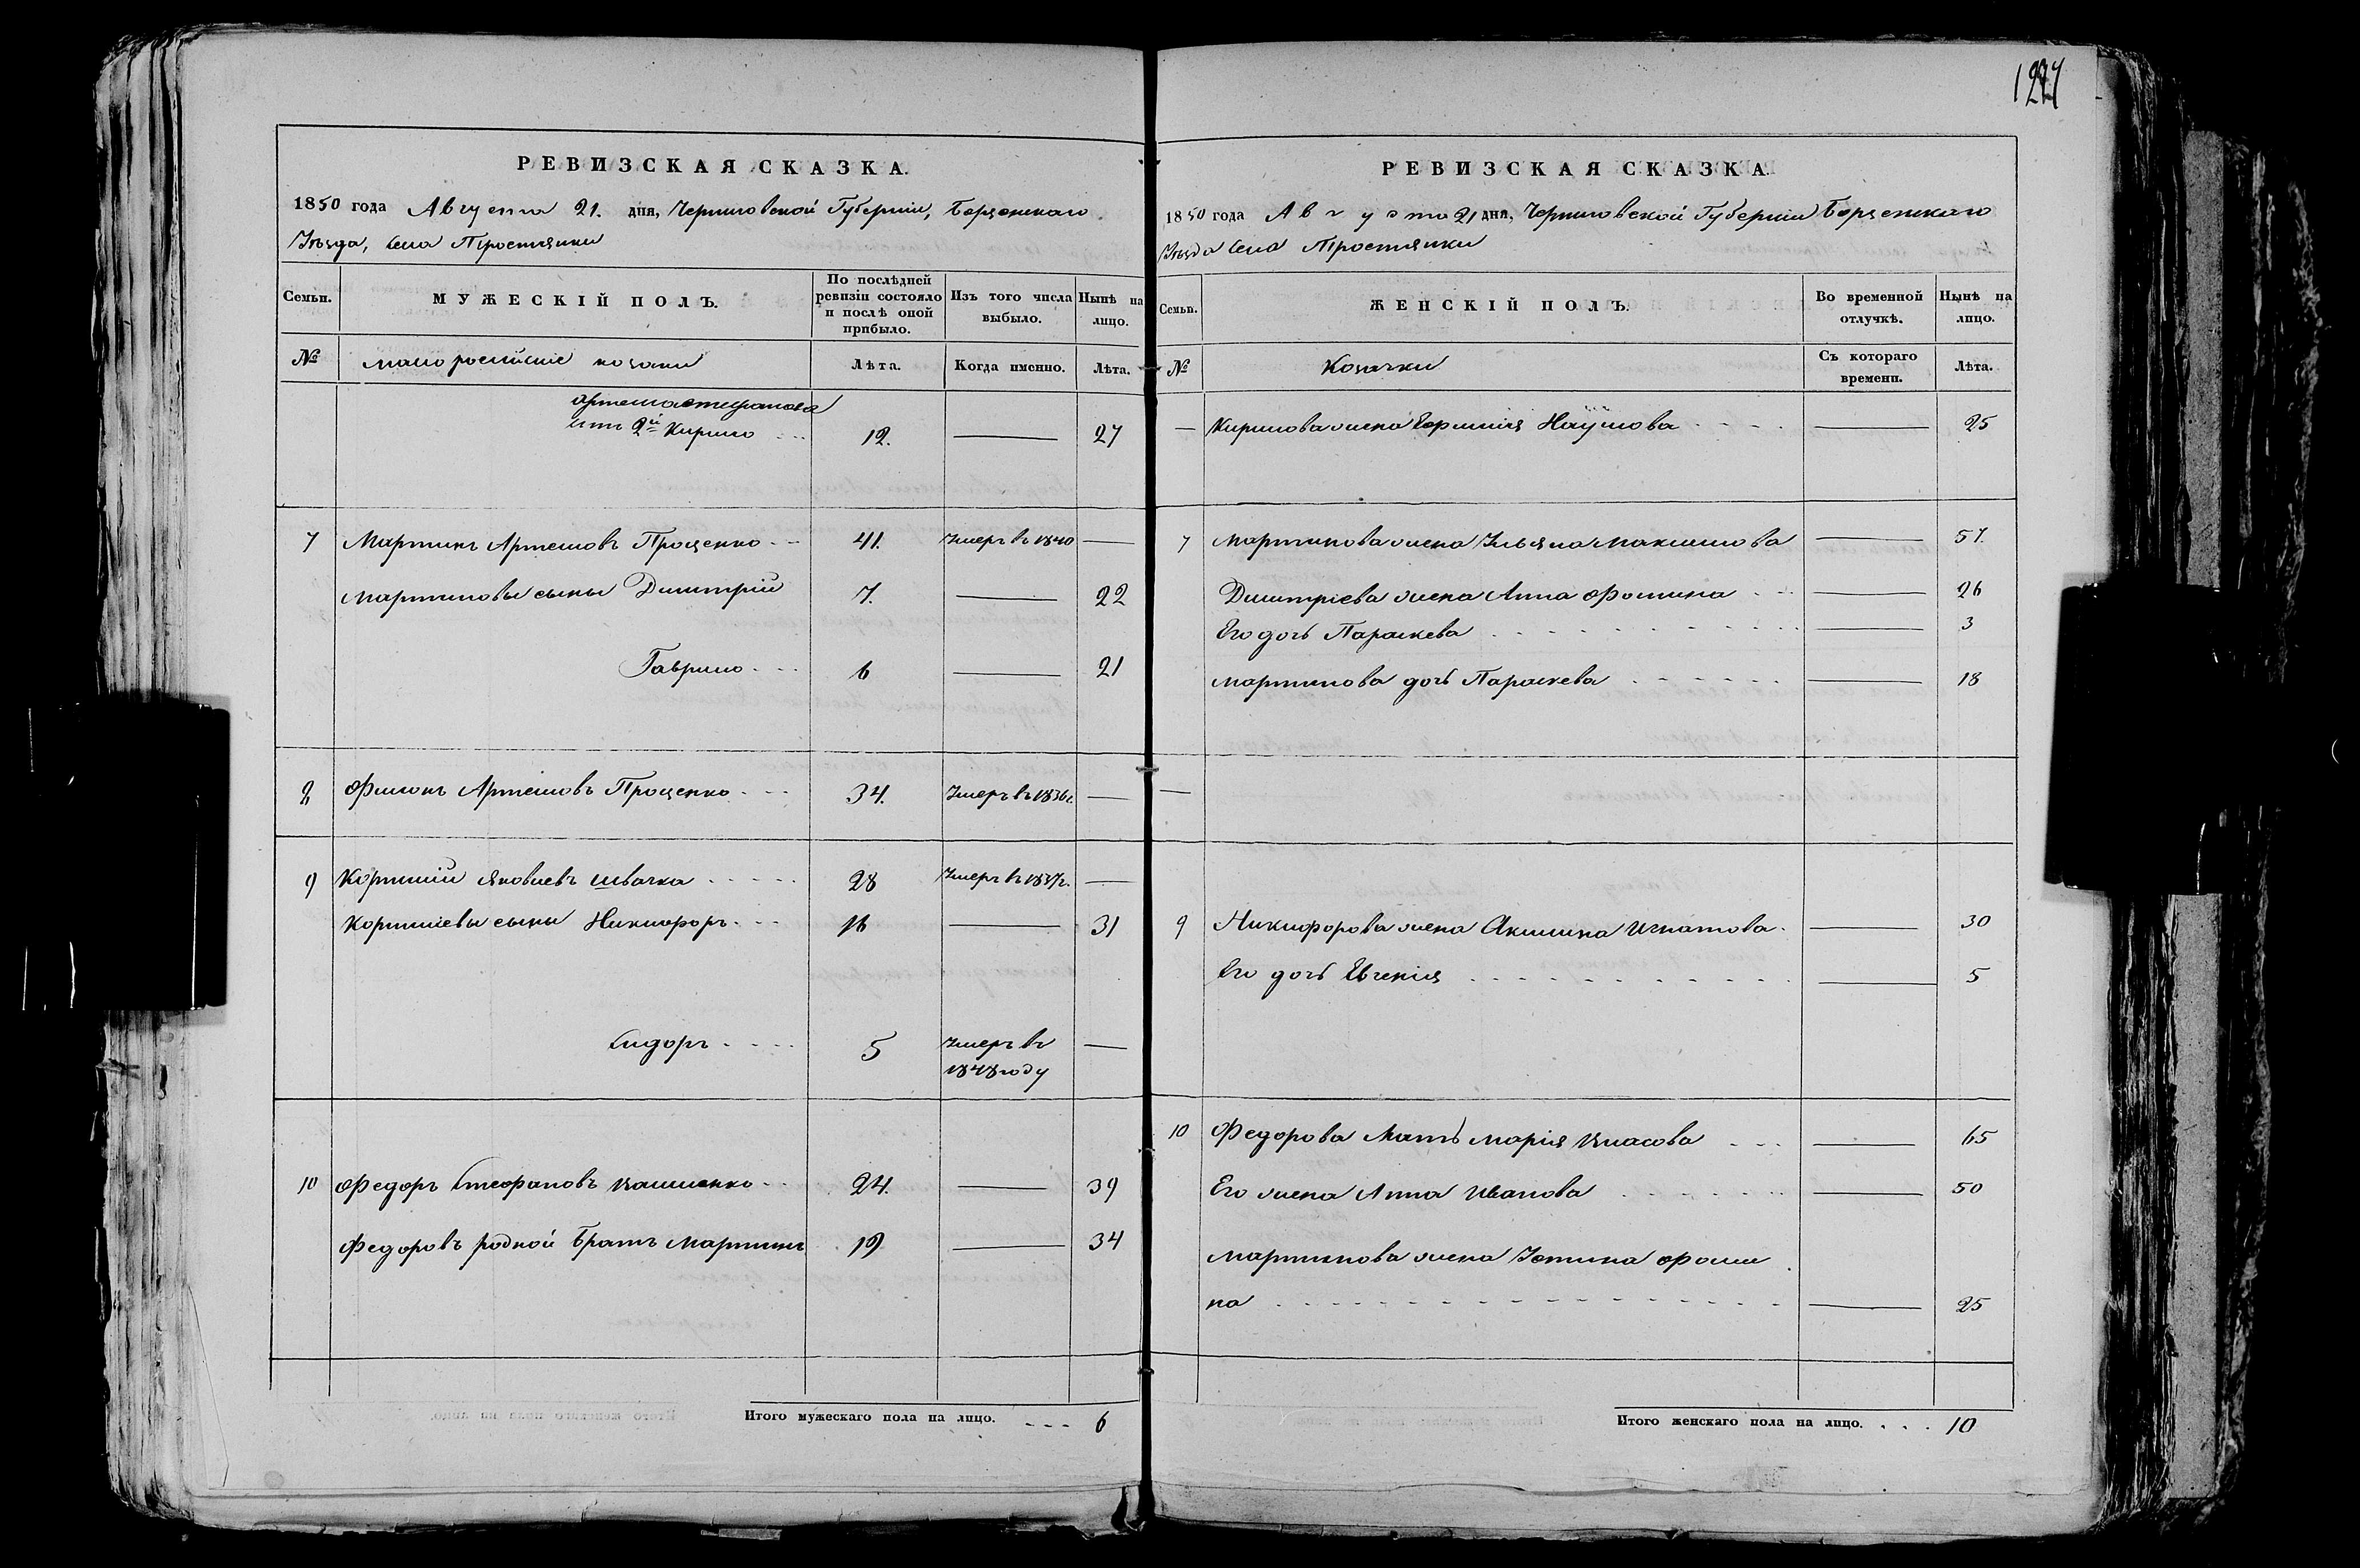 1227
РЕВИЗСКАЯ СКАЗКА.
1850 года Августа 21. дня, Черниговской Губерніи, Борзенскаго
Уѣзда, Села Простянки
Семьи.
МУЖЕСКІЙ ПОЛЪ.
По послѣдней ревизіи состояло и послѣ оной прибыло.
Изъ того числа выбыло.
Нынѣ на лицо.
№ малороссійскіе козаки Лѣта. Когда именно. Лѣта.
Артема Степанова
сынъ 2й Кирило 12. 27
7 Мартинъ Артемовъ Проценко 41. Умеръ въ 1840
Мартиновы сыны Димитрій 7. 22
Гаврило 6 21
8 Филипъ Артемовъ Проценко 34. Умеръ въ 1836г.
9 Корнилій Яковлевъ Швачка 28 Умеръ въ 1837г.
Корниліевы сыны Никифоръ 16 31
Сидоръ 5 Умеръ въ
1848 году
10 Федоръ Стефановъ 24. 39
Федоровъ родной братъ Мартинъ 19 34
Итого мужескаго пола на лицо. 6
РЕВИЗСКАЯ СКАЗКА.
1850 года Августа 21 дня, Черниговской Губерніи Борзенскаго
Уѣзда Села Простянки
Семьи.
ЖЕНСКІЙ ПОЛЪ.
Во временной отлучкѣ.
Нынѣ на лицо.
№ Козачки Съ котораго времени. Лѣта.
Кирилова жена Ефимія Наумова 25
7 Мартинова жена Ульяна Максимова 57.
Димитріева жена Анна Фомина 26
Его дочь Параскева 3
Мартинова дочь Параскева 18
9 Никифорова жена Акилина Игнатова 30
Его дочь Евгенія 5
10 Федорова Мать Марія Власова 65
Его жена Анна Иванова 50
Мартинова жена Устина Фоми
на 25
Итого женскаго пола на лицо. 10